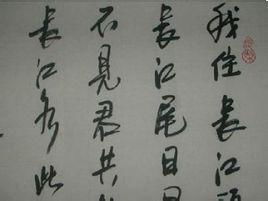 我住長江頭
長江尾日日
不見君共
長江水此